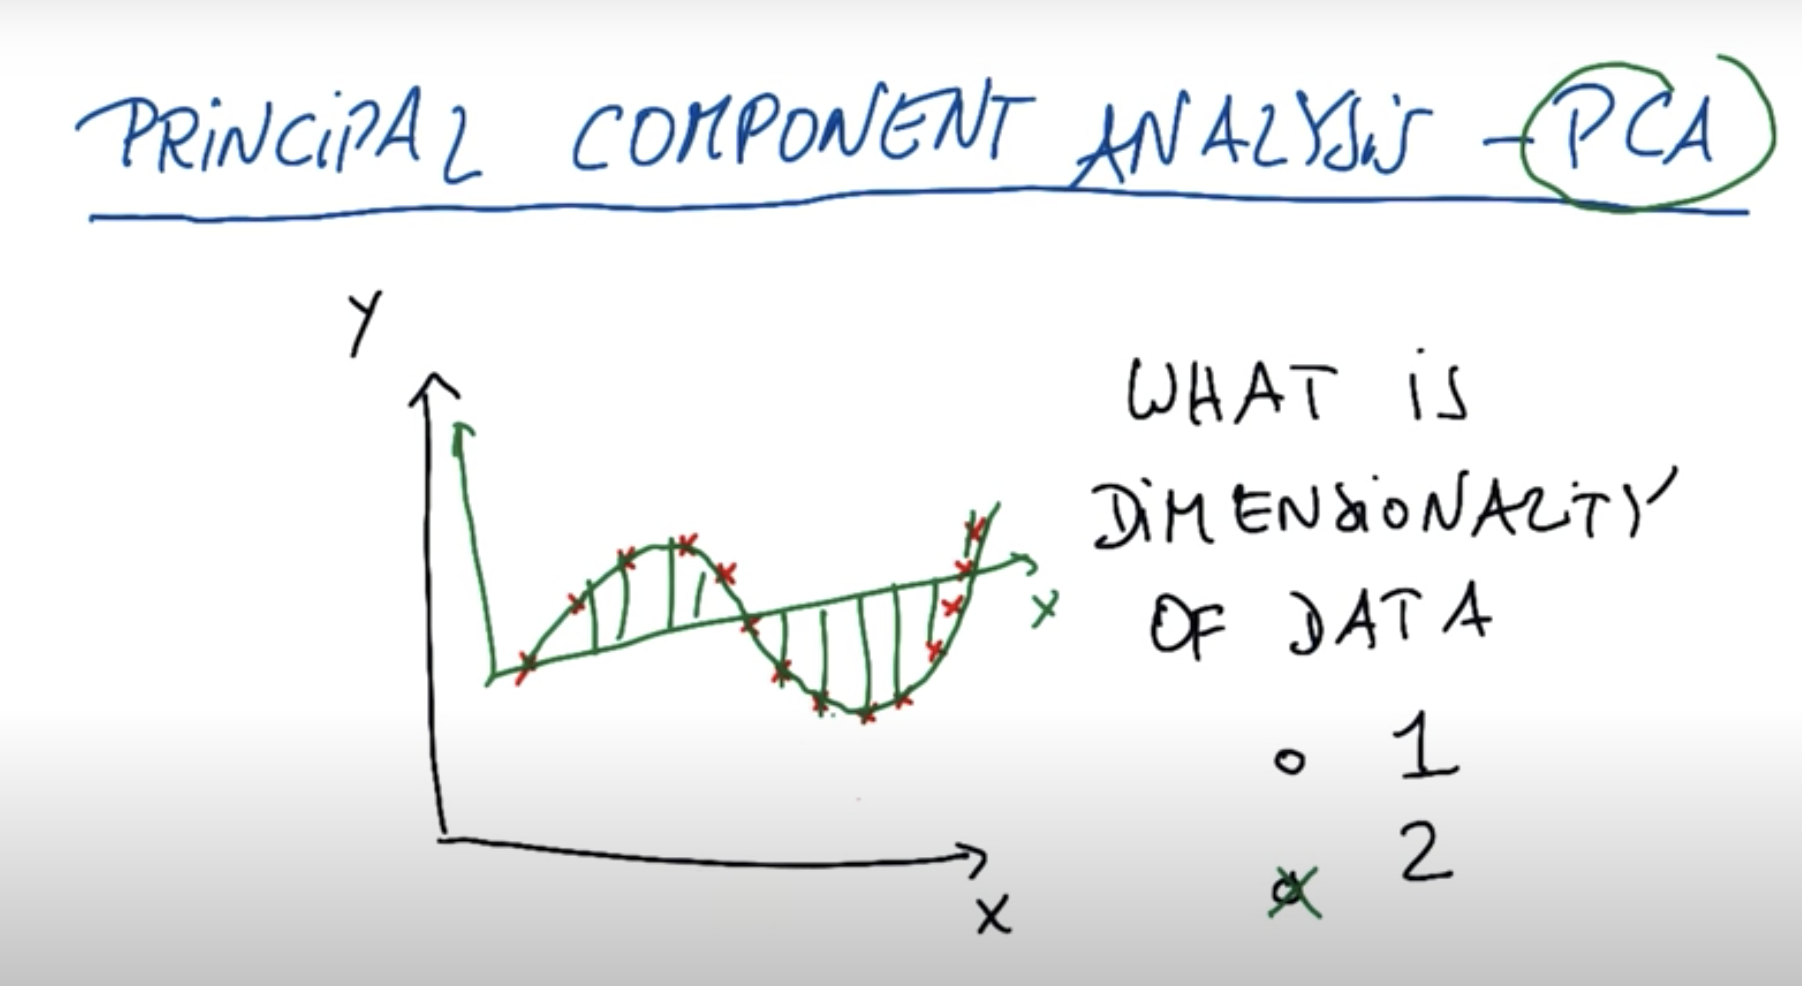 PRINCIPAL COMPONENT ANALYSIS - PCA
Y
WHAT IS
DIMENSIONALITY
OF DATA
X
1
2
X